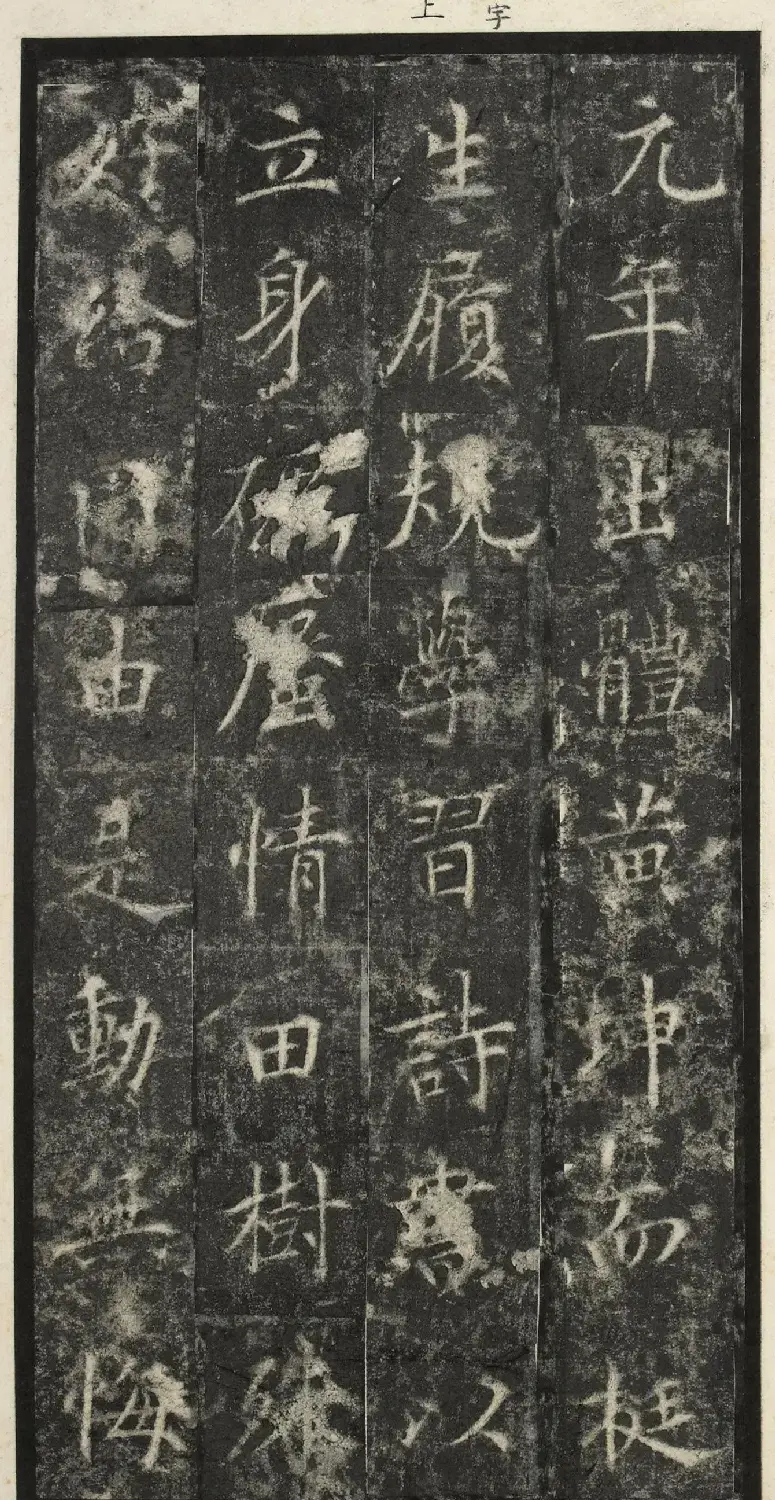 上 字
元年出體黃坤而挺
生履規學習詩書以
立身情田樹
由是動無悔